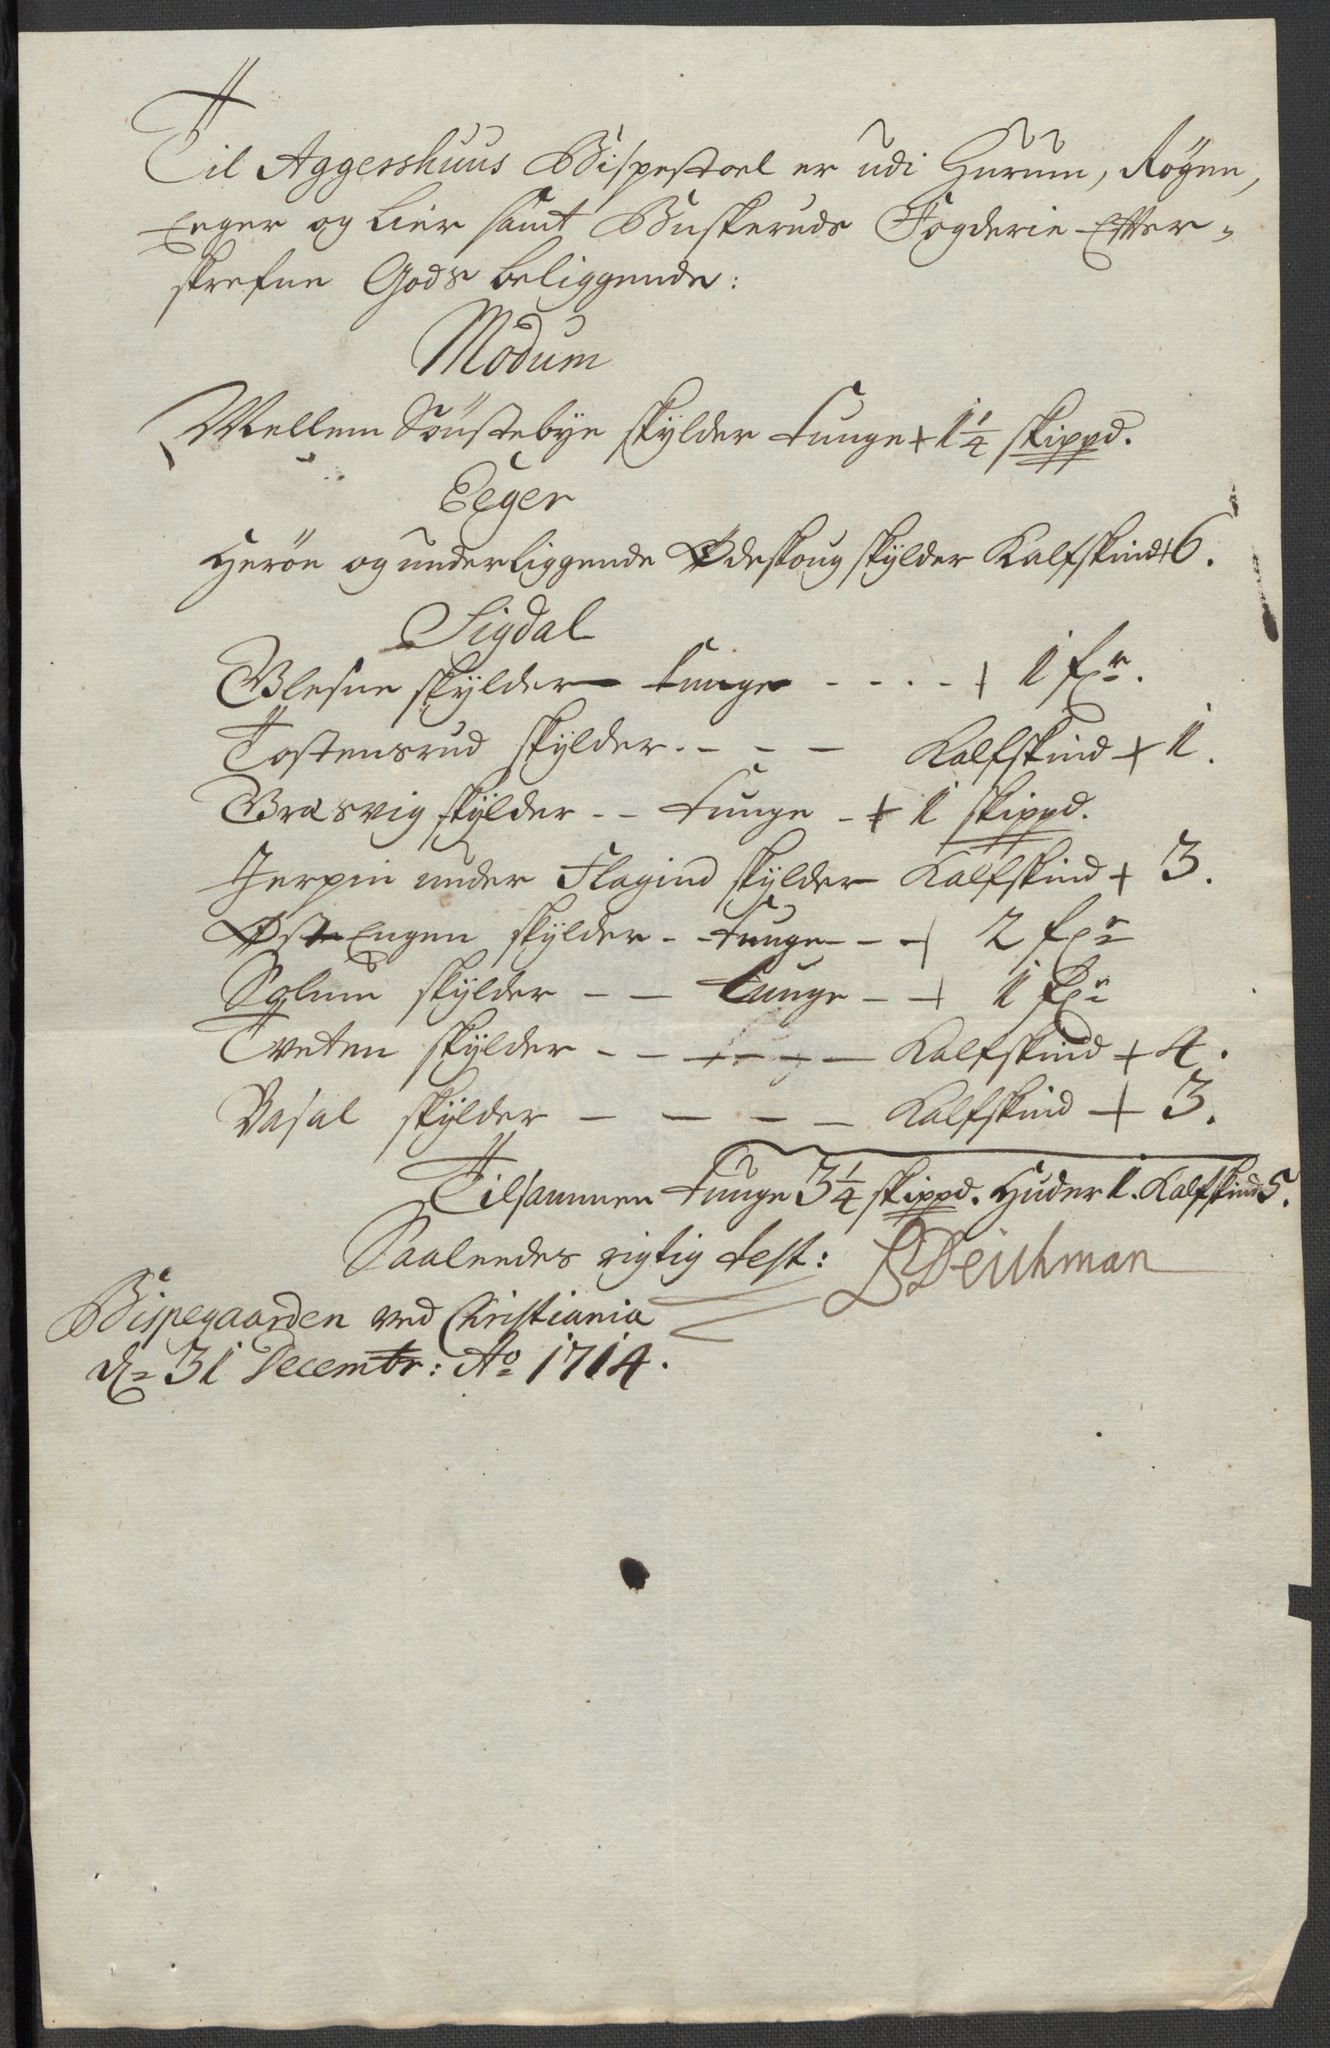 Til Aggershuus Bispestoel er udi Hurum, Røgen,
Eeger og Lier samt Buskeruds Fogderie Effter-
skrefne Gods beliggende:
Modum
Mellem Söustebye skylder tunge + 1 1/4 skippd.
Eeger
Heröe og underliggende Ødeskoug skylder Kalfskind + 6.
Sigdal
Blesne skylder tunge - - - - + 1 fr.
Tostensrud skylder. - - - Kalfskind + 1.
Bræsvig skylder - - tunge - + 1 skippd.
Jerpin under Flagind skylder Kalfskind + 3.
Øst Engen skylder - - tunge - - + 2 fr
Solum skylder - - tunge - + 1 fr
Tveten skylder - - - - - Kalfskind + 4.
Vasal skylder - - - - Kalfskind + 3.
Tilsammen tunge 3 1/4 skippd. Huder 1. Kalfskind 5.
Saaleedes rigtig test: Deichman
Bispegaarden ved Christiania
dn 31 Decembr: Ao 1714.